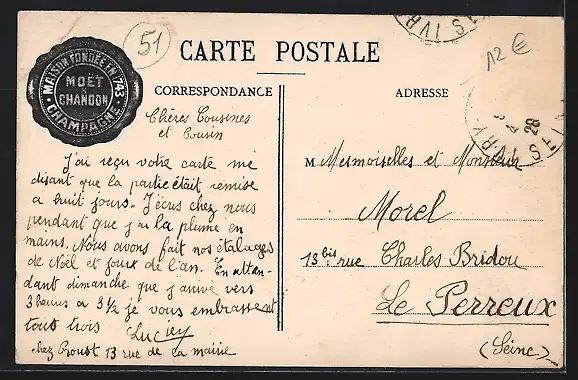 51
CARTE POSTALE
12 €
MAISON FONDÉE EN 1743
MOËT
&
CHANDON
CHAMPAGNE
CORRESPONDANCE
ADRESSE
Chères Cousines
et Cousin
J'ai reçu votre carte me
disant que la partie était remise
a huit jours. J'écris chez nous
pendant que j'ai la plume en
mains. Nous avons fait nos étalages
de Noël et jour de l'an. En atten-
dant dimanche que j'arrive vers
3 heures a 3½ je vous embrassent
tous trois
Lucien
chez Proust 13 rue de la mairie
M Mesmoiselles et Monsieur
Morel
13 bis rue Charles Bridou
Le Perreux
(Seine)
28